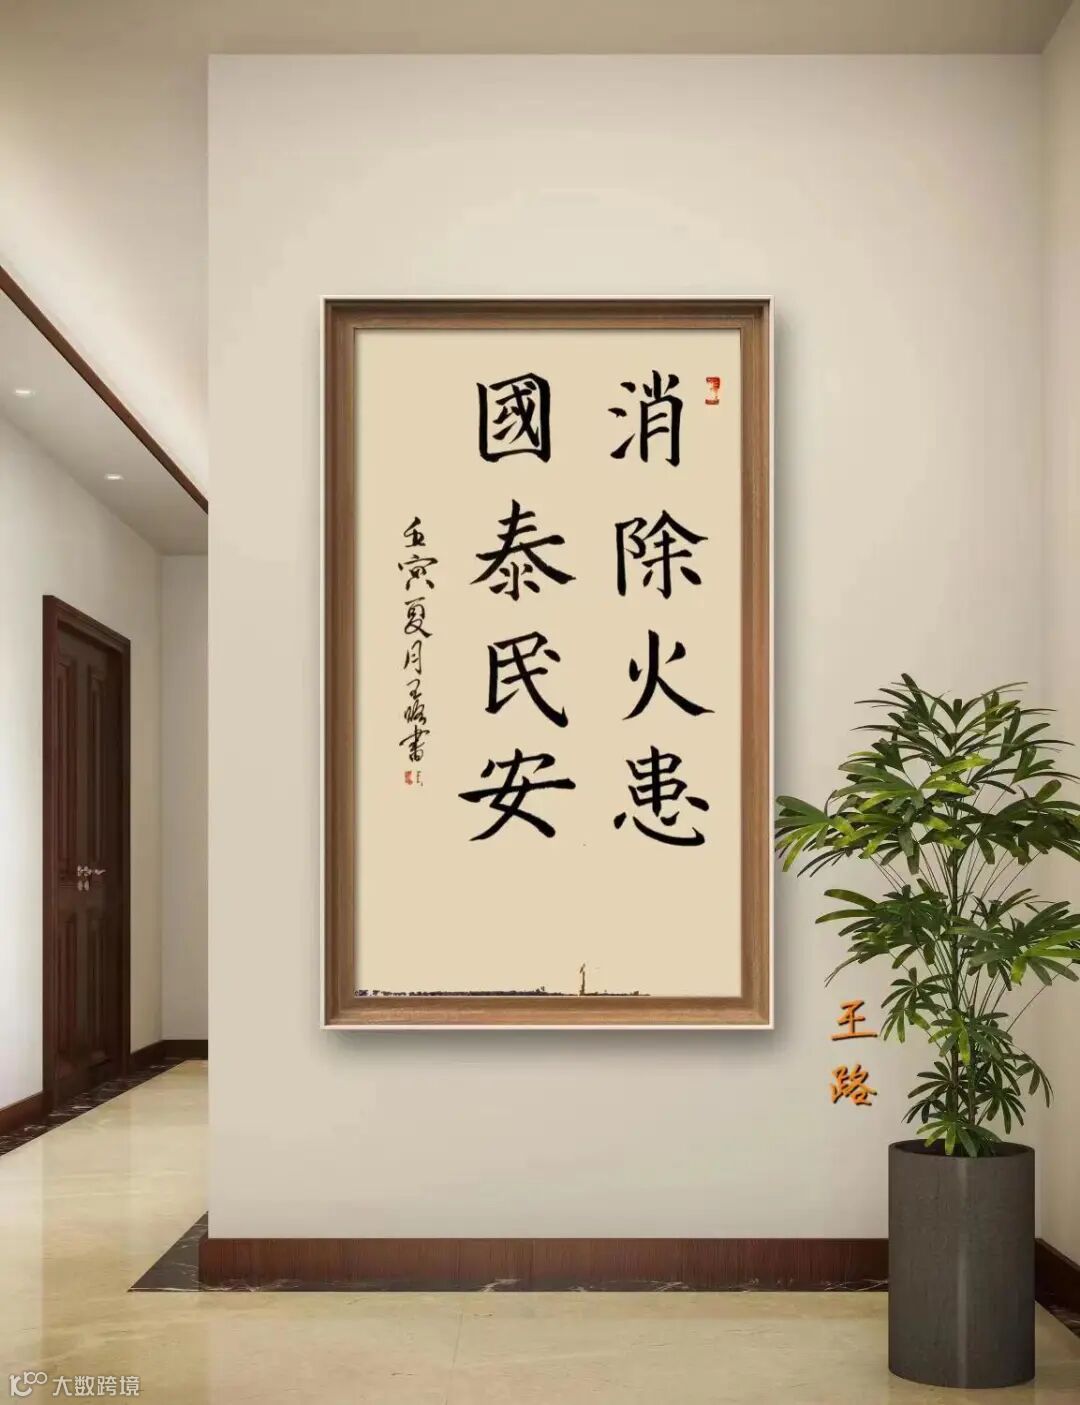 消除火患
國泰民安
壬寅夏月王路書
王路
大数跨境